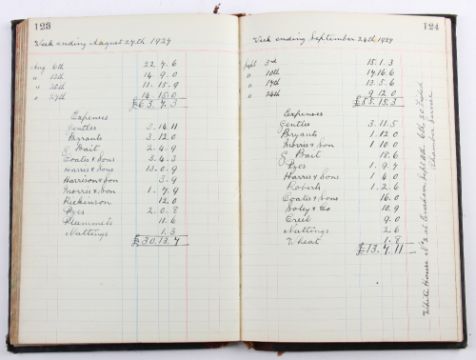 123
Week ending August 27th 1927
Aug 6th 22. 7. 6
" 13th 14. 9. 0
" 20th 11. 15. 9
" 27th 14. 15. 0
£63. 7. 3
Expenses
Gentles 2. 14. 11
Bryants 3. 12. 0
G Bait 2. 4. 9
Coates & Sons 3. 4. 3
Harris & Sons 13. 0. 9
Harrison & Son 3. 9
Morris & Son 1. 7. 9
Dickenson 12. 0
Dyes 2. 0. 8
Plummets 11. 6
Nuttings 1. 3
£30. 13. 7
124
Week ending September 24th 1927
Sept 3rd 15. 1. 3
" 10th 17. 16. 6
" 17th 13. 5. 6
" 24th 9. 12. 0
£55. 15. 3
Expenses
Gentles 3. 11. 5
Bryants 1. 12. 0
Morris & Son 1. 10. 0
G Bait 18. 6
Dyes 1. 9. 7
Harris & Sons 1. 4. 0
Roberts 1. 2. 6
Coates & Sons 16. 0
& Co 10. 9
Creel 9. 0
Nuttings 2. 6
Wheat 1. 8
£13. 7. 11
White House Sept